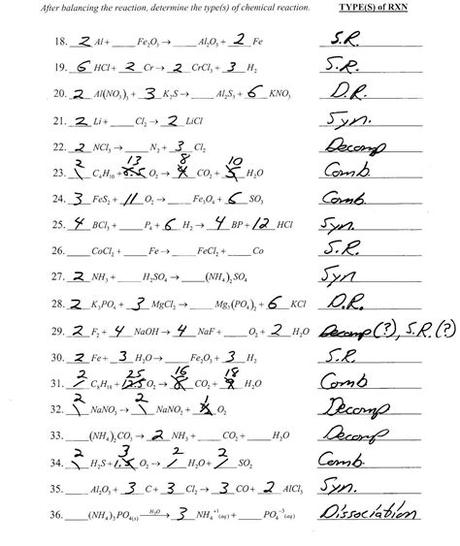 After balancing the reaction, determine the type(s) of chemical reaction. TYPE(S) of RXN
18. 2 Al + ___ Fe₂O₃ → ___ Al₂O₃ + 2 Fe S.R.
19. 6 HCl + 2 Cr → 2 CrCl₃ + 3 H₂ S.R.
20. 2 Al(NO₃)₃ + 3 K₂S → ___ Al₂S₃ + 6 KNO₃ D.R.
21. 2 Li + ___ Cl₂ → 2 LiCl Syn.
22. 2 NCl₃ → ___ N₂ + 3 Cl₂ Decomp
23. 2 C₄H₁₀ + 13 O₂ → 8 CO₂ + 10 H₂O Comb.
24. 3 FeS₂ + 11 O₂ → ___ Fe₃O₄ + 6 SO₂ Comb.
25. 4 BCl₃ + ___ P₄ + 6 H₂ → 4 BP + 12 HCl Syn.
26. ___ CoCl₂ + ___ Fe → ___ FeCl₂ + ___ Co S.R.
27. 2 NH₃ + ___ H₂SO₄ → ___ (NH₄)₂SO₄ Syn
28. 2 K₃PO₄ + 3 MgCl₂ → ___ Mg₃(PO₄)₂ + 6 KCl D.R.
29. 2 F₂ + 4 NaOH → 4 NaF + ___ O₂ + 2 H₂O Decomp (?), S.R. (?)
30. 2 Fe + 3 H₂O → ___ Fe₂O₃ + 3 H₂ S.R.
31. 2 C₈H₁₈ + 25 O₂ → 16 CO₂ + 18 H₂O Comb
32. 2 NaNO₃ → 2 NaNO₂ + O₂ Decomp
33. ___ (NH₄)₂CO₃ → 2 NH₃ + ___ CO₂ + ___ H₂O Decomp
34. 2 H₂S + 3 O₂ → 2 H₂O + 2 SO₂ Comb.
35. ___ Al₂O₃ + 3 C + 3 Cl₂ → 3 CO + 2 AlCl₃ Syn.
36. ___ (NH₄)₃PO₄(s) H₂O → 3 NH₄⁺¹(aq) + ___ PO₄⁻³(aq) Dissociation